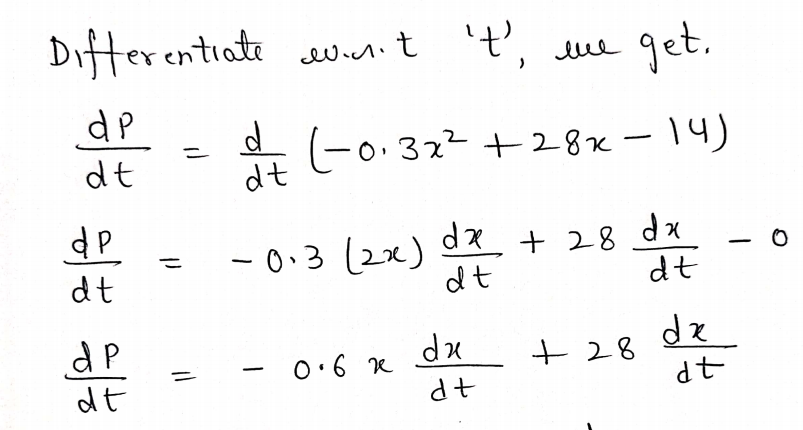 Differentiate w.r.t 't', we get.
dP/dt = d/dt (-0.3x² + 28x - 14)
dP/dt = -0.3 (2x) dx/dt + 28 dx/dt - 0
dP/dt = - 0.6 x dx/dt + 28 dx/dt